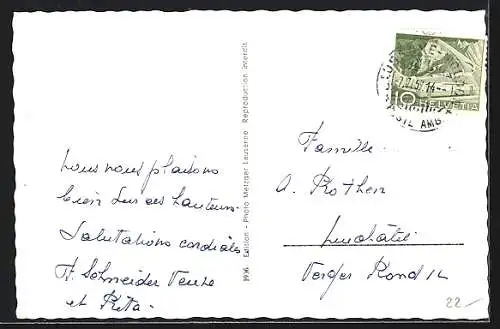 Nous nous plaisons
bien sur ces hauteurs.
Salutations cordiales
A. Schneider Veuve
et Rita.
1936 Edition - Photo Metzger Lausanne Reproduction interdit
10 HELVETIA
POSTE AMB
Famille
A. Rothen
Neuchâtel
Verger Rond 12
22.-